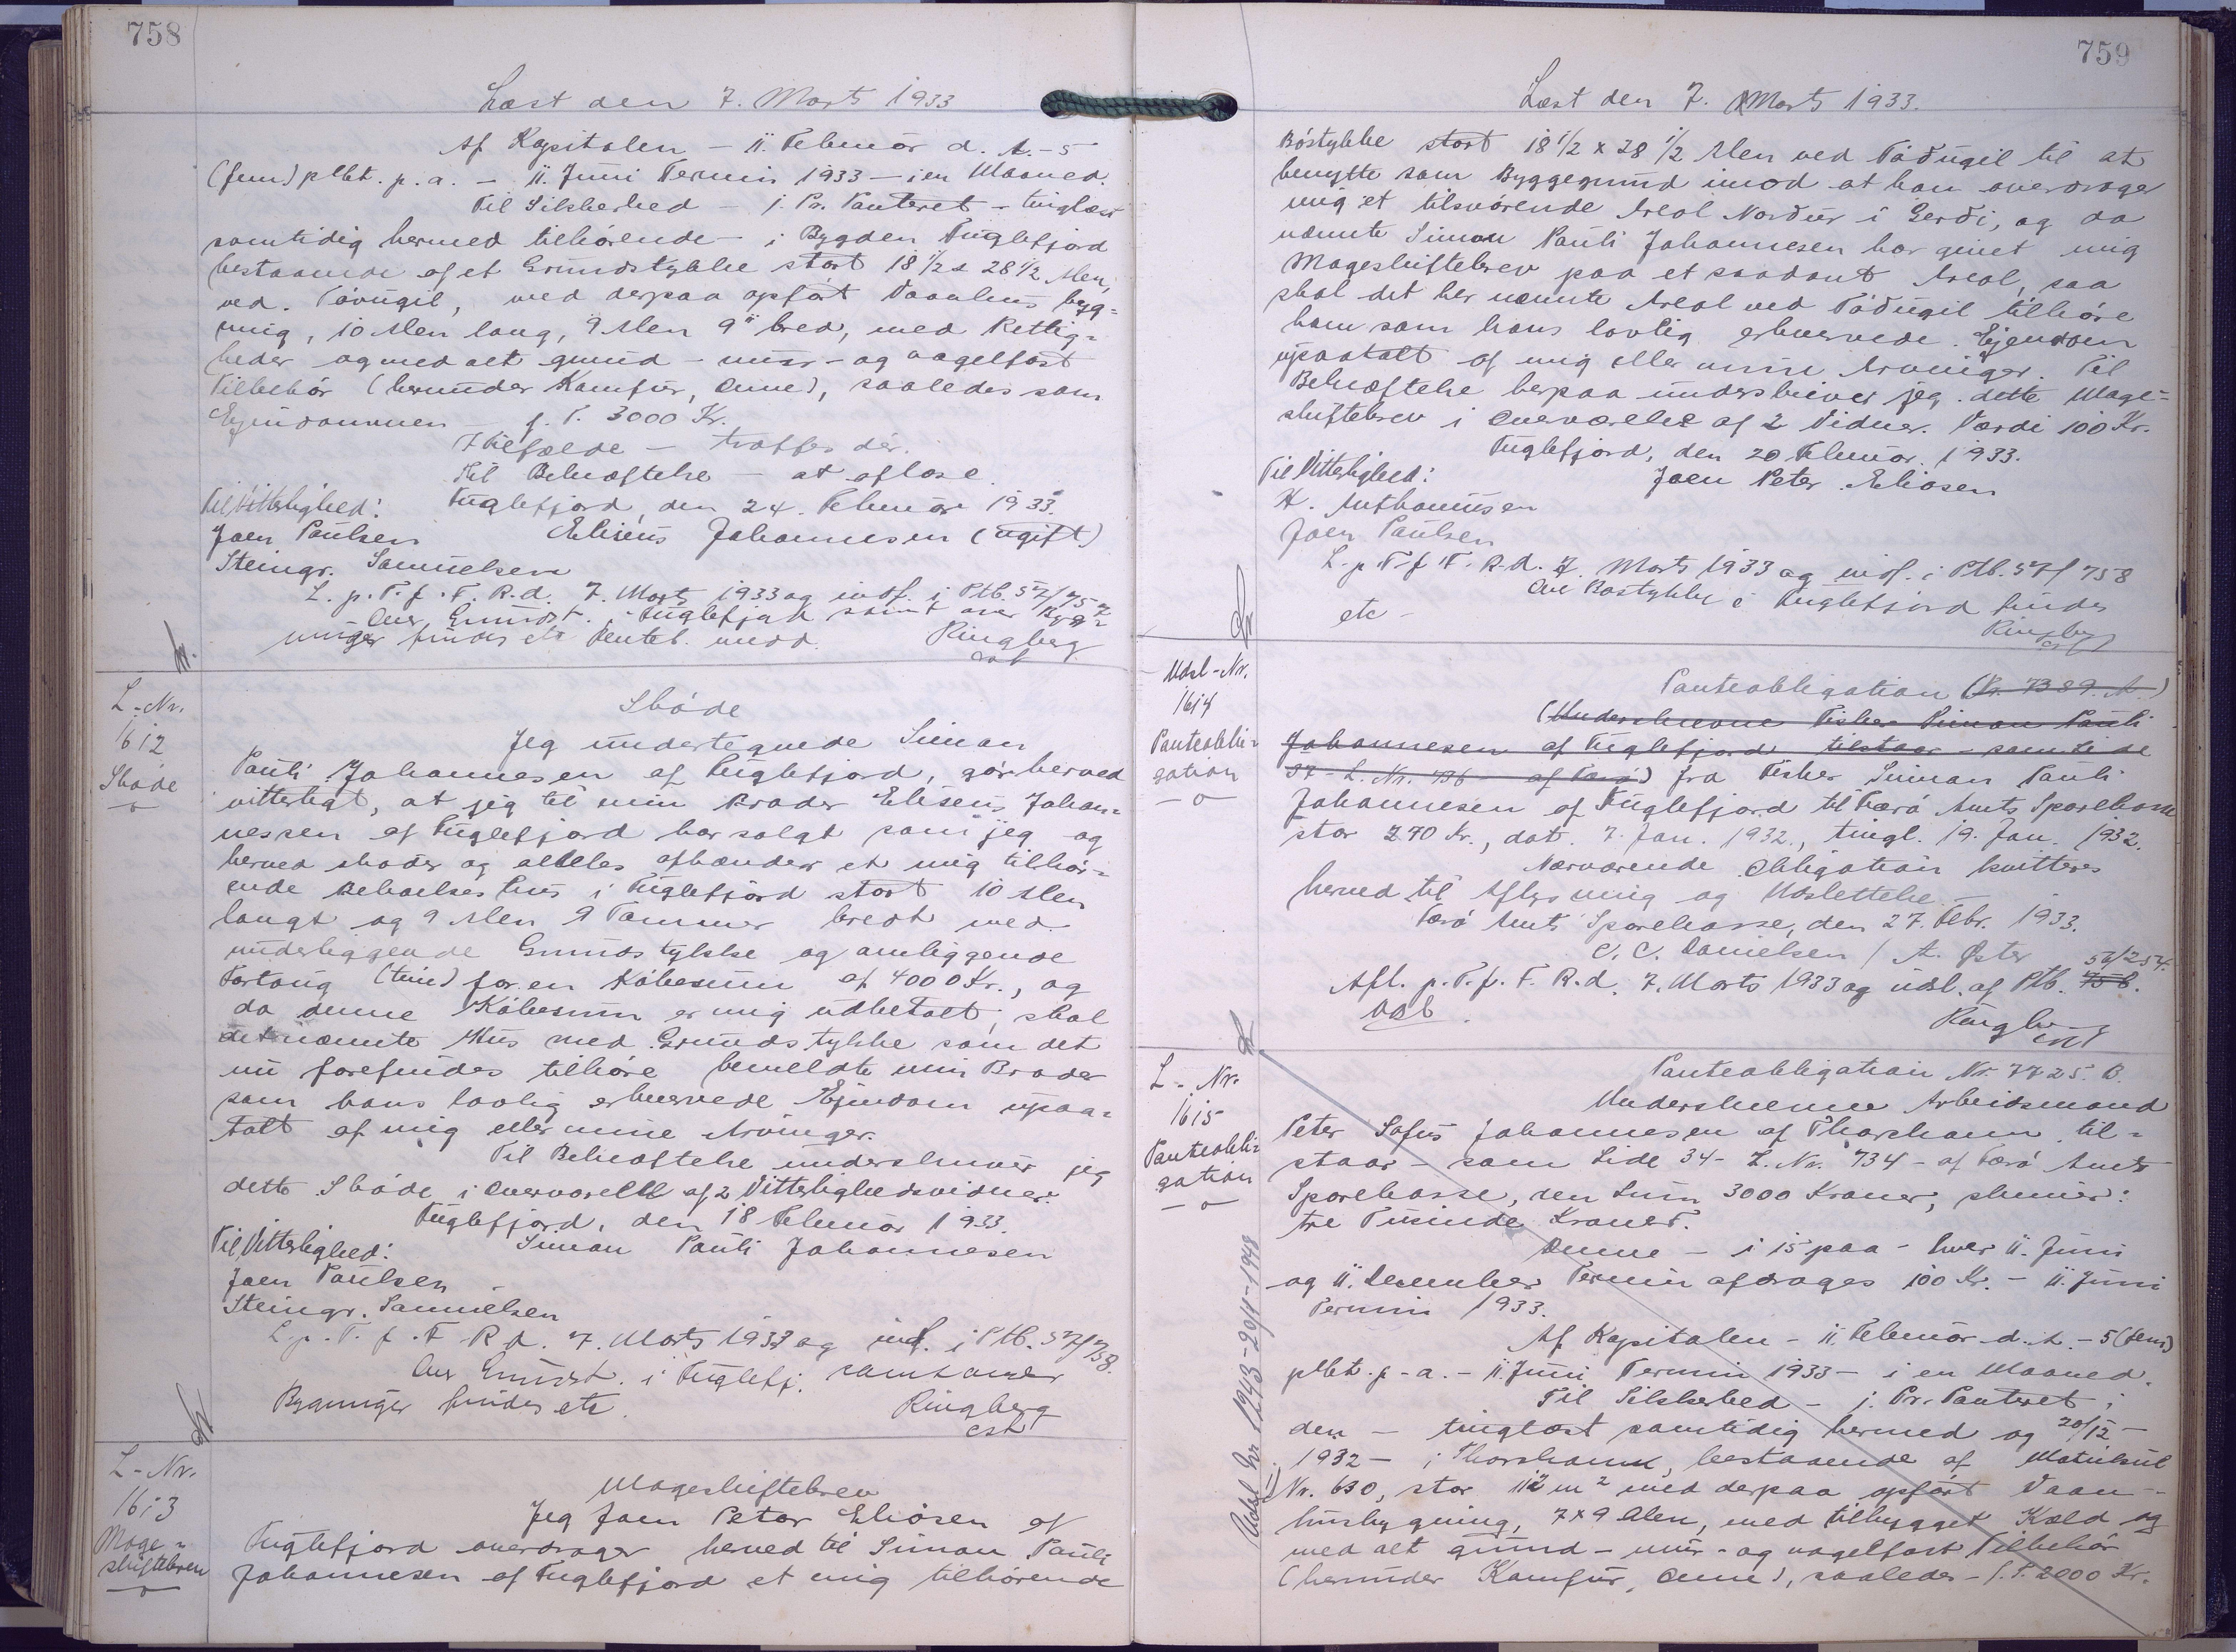 758
Læst den 7. Marts 1933
Af Kapitalen - 11. Februar d. A. - 5
(fem) pCt. p. a. - 11. Juni Termin 1933 - i en Maaned.
Til Sikkerhed - j. Pr. Panteret - tinglæst
samtidig hermed tilhørende - i Bygden Fuglefjord
bestaaende af et Grundstykke stort 18 1/2 x 28 1/2 Alen,
ved. med derpaa opført Vaanhus byg-
ning, 10 Alen lang, 9 Alen 9" bred, med Rettig-
heder og med alt grund- mur- og nagelfast
Tilbehør (herunder Komfur, Ovne), saaledes som
Ejendommen - f. T. 3000 Kr.
I Tilfælde - træffes dér.
Til Bekræftelse - at aflæse.
Til Vitterlighed: Fuglefjord, den 24. Februar 1933.
Joen Paulsen Elisëus Johannesen (ugift)
Steingr. Samuelsen
L. p. T. f. F. R. d. 7. Marts 1933 og indf. i Ptb. 57/757
Ove Grundst. i Fuglefjord samt over Byg-
ninger findes etc Panteb. medd. Ringberg
cst
L-Nr.
1612
Skøde
Skøde
Jeg undertegnede Simon
Pauli Johannesen af Fuglefjord, gør herved
vitterligt, at jeg til min Broder Eliseus Johan-
nessen af Fuglefjord har solgt som jeg og
herved skøder og aldeles afhænder et mig tilhør-
ende Beboelseshus i Fuglefjord stort 10 Alen
langt og 9 Alen 9 Tommer bredt med
underliggende Grundstykke og omliggende
Fortoug (tun) for en Købesum af 4000 Kr., og
da denne Købesum er mig udbetalt, skal
det nævnte Hus med Grundstykke som det
nu forefindes tilhøre bemeldte min Broder
som hans lovlig erhvervede Ejendom upaa-
talt af mig eller mine Arvinger.
Til Bekræftelse underskriver jeg
dette Skøde i Overværelse af 2 Vitterlighedsvidner:
Fuglefjord, den 18 Februar 1933.
Til Vitterlighed: Simon Pauli Johannesen
Joen Paulsen
Steingr. Samuelsen
L. p. T. f. F. R. d. 7. Marts 1933 og indf. i Ptb. 57/758.
Ove Grundst. i Fuglefj. samt over
Bygninger findes etc. Ringberg
cst
L-Nr.
1613
Mage-
skiftebrev
Mageskiftebrev
Jeg Joen Peter Eliasen af
Fuglefjord overdrager herved til Simon Pauli
Johannesen af Fuglefjord et mig tilhørende
759
Læst den 7. Marts 1933.
Bøstykke stort 18 1/2 x 28 1/2 Alen ved Táðugil til at
benytte som Byggegrund imod at han overdrager
mig et tilsvarende Areal Norður i Gerði, og da
nævnte Simon Pauli Johannesen har givet mig
Mageskiftebrev paa et saadant Areal, saa
skal det her nævnte Areal ved Táðugil tilhøre
ham som hans lovlig erhvervede Ejendom
upaatalt af mig eller mine Arvinger. Til
Bekræftelse herpaa underskriver jeg dette Mage-
skiftebrev i Overværelse af 2 Vidner. Værdi 100 Kr.
Fuglefjord, den 20 Februar 1933.
Til Vitterlighed: Joen Peter Eliasen
K. Anthoniusen
Joen Paulsen
L. p. T. f. F. R. d. 7. Marts 1933 og indf. i Ptb. 57/758
Ove Bøstykke i Fuglefjord findes
etc - Ringberg
cst
Udsl-Nr.
1614
Panteobli-
gation
Panteobligation (Nr. 7389. A.)
(Underskrevne Fisker Simon Pauli
Johannesen af Fuglefjord tilstaar - som Side
37 - L. Nr. 736 - af Færø) fra Fisker Simon Pauli
Johannesen af Fuglefjord til Færø Amts Sparekasse
stor 290 Kr., dat. 7. Jan. 1932., tingl. 19. Jan. 1932.
Nærværende Obligation kvitteres
herved til Aflysning og Udslettelse.
Færø Amts Sparekasse, den 27. Febr. 1933.
C. C. Danielsen / A. Øster
Afl. p. T. f. F. R. d. 7. Marts 1933 og udsl. af Ptb. 52/254.
Ringberg
cst
L-Nr.
1615
Panteobli-
gation
Panteobligation Nr. 7725. B.
Underskrevne Arbejdsmand
Peter Sofus Johannesen af Thorshavn til-
staar - som Side 34 - L. Nr. 734 - af Færø Amts
Sparekasse, den Sum 3000 Kroner, skriver:
tre Tusinde Kroner.
Denne - i 15 paa - hver 11. Juni
og 11. December Termin afdrages 100 Kr. - 11. Juni
Termin 1933.
Af Kapitalen - 11. Februar d. A. - 5 (fem)
pCt. p. a. - 11. Juni Termin 1933 - i en Maaned.
Til Sikkerhed - j. Pr. Panteret i
den - tinglæst samtidig hermed og 20/12 -
1932 - i Thorshavn, bestaaende af Matrikul
Nr. 630, stor 112 m² med derpaa opført Vaan-
husbygning, 7 x 9 Alen, med tilbygget Kæld og
med alt grund- mur- og nagelfast Tilbehør
(herunder Komfur, Ovne), saaledes - f. T. 2000 Kr.